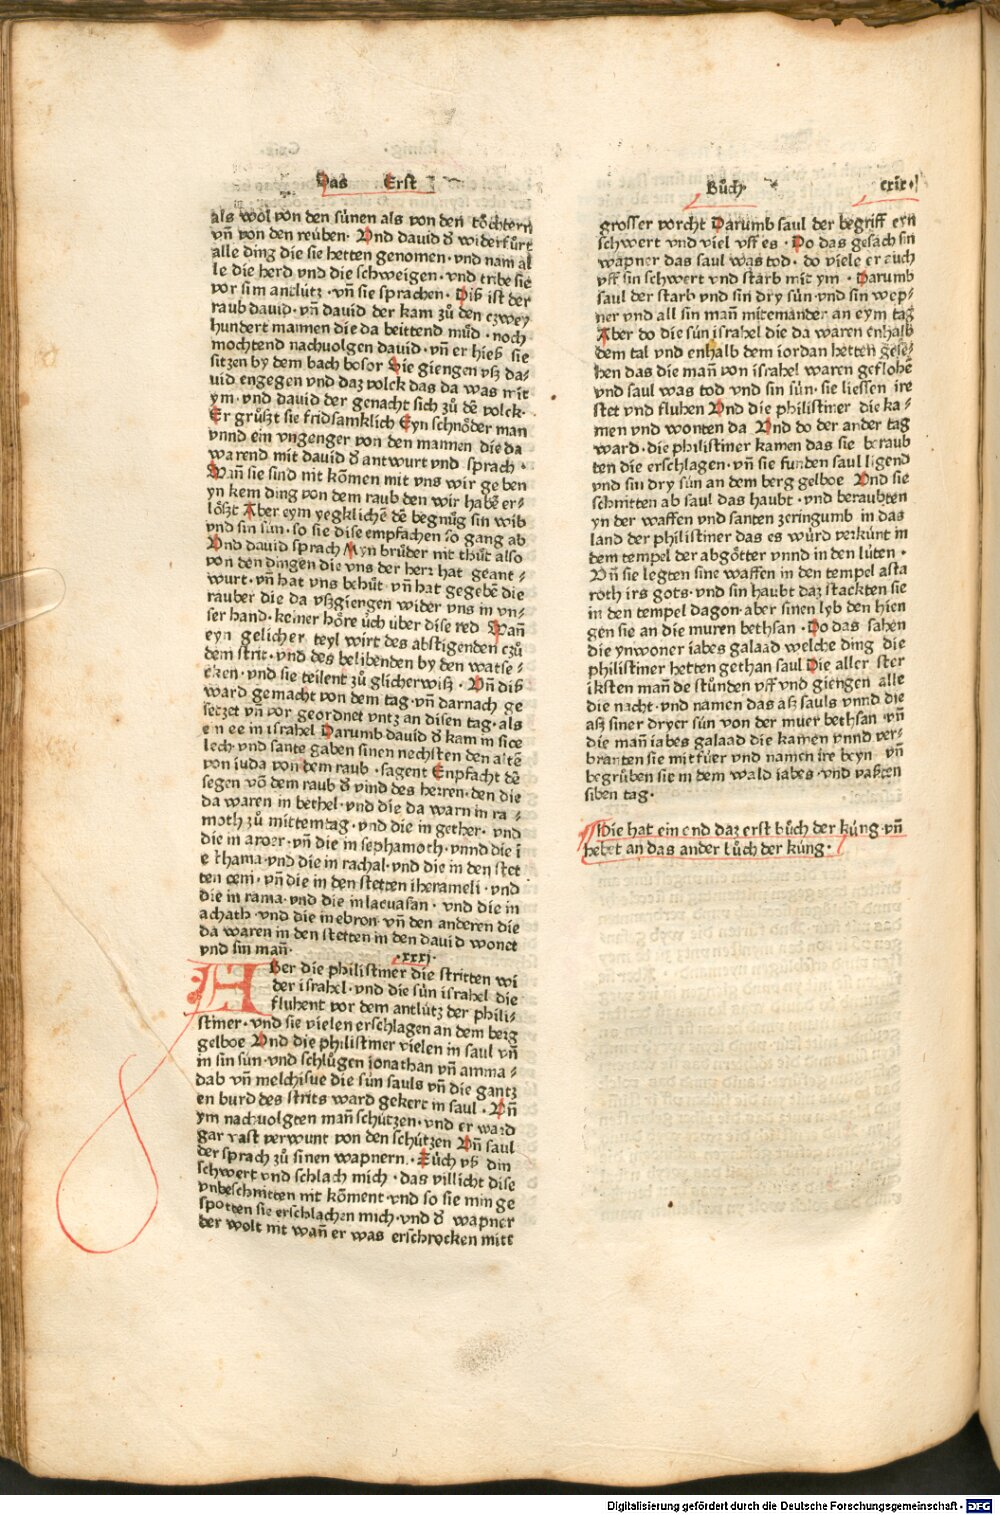 Das Erst
Bůch
cxix
als wol von den sünen als von den tőchtern
vñ von den reüben. Und david d̕ widerfürt
alle ding die sie hetten genomen. vnd nam al
le die herd vnd die schweigen. vnd tribe sie
vor sim antlütz. vñ sie sprachen. Diß ist der
raub david. vñ david der kam zů den czwey
hundert mannen die da beittend můd. noch
mochtend nachvolgen david. vñ er hieß sie
sitzen by dem bach bosor Sie giengen vsz da-
vid engegen vnd daz volck das da was mit
ym. vnd david der genacht sich zů dē volck.
Er grůszt sie fridsamklich Eyn schnőder man
vnnd ein vngenger von den mannen die da
warend mit david d̕ antwurt vnd sprach.
Wañ sie sind nit kőmen mit vns wir geben
yn kem ding von dem raub den wir habē er-
lőszt Aber eym yegklichē dē begnüg sin wib
vnd sin sün. so sie dise empfachen so gang ab
Und david sprach Myn brüder nit thüt also
von den dingen die vns der herr hat geant-
wurt. vñ hat vns behüt vñ hat gegebē die
rauber die da vszgiengen wider vns in vn-
ser hand. keiner hőre üch über dise red Wañ
eyn gelicher teyl wirt des abstigenden czů
dem strit. vnd des belibenden by den watse-
cken. vnd sie teilent zů glicherwisz. Vñ diß
ward gemacht von dem tag. vñ darnach ge
seczet vñ vor geordnet vntz an disen tag. als
ein ee in israhel Darumb david d̕ kam in sice
lech. vnd sante gaben sinen nechsten den altē
von iuda von dem raub. sagent Enpfacht dē
segen vō dem raub d̕ vind des herren. den die
da waren in bethel. vnd die da warn in ra-
moth zů mittemtag. vnd die in gether. vnd
die in aroer. vñ die in sephamoth. vnnd die ī
ethama. vnd die in rachal. vnd die in den stet
ten ceni. vñ die in den stetten iherameli. vnd
die in rama. vnd die in lacuasan. vnd die in
achath. vnd die in ebron. vñ den anderen die
da waren in den stetten in den david wonet
vnd sin mañ.
.xxxj.
Aber die philistiner die stritten wi
der israhel. vnd die sün israhel die
fluhent vor dem antlütz der phili-
stiner. vnd sie vielen erschlagen an dem berg
gelboe Und die philistiner vielen in saul vñ
in sin sün. vnd schlůgen jonathan vñ amma-
dab vñ melchisue die sün sauls vñ die gantz
en burd des strits ward gekert in saul. Vñ
ym nachvolgten mañ schützen. vnd er ward
gar vast verwunt von den schützen Vñ saul
der sprach zů sinen wapnern. Züch vß din
schwert vnd schlach mich. das villicht dise
vnbeschnitten nit kőment. vnd so sie min ge
spotten sie erschlachen mich. vnd d̕ wapner
der wolt nit wañ er was erschrocken mitt
grosser vorcht Darumb saul der begriff eyn
schwert vnd viel vff es. Do das gesach sin
wapner das saul was tod. do viele er auch
vff sin schwert vnd starb mit ym. Darumb
saul der starb vnd sin dry sün. vnd sin wep-
ner vnd all sin mañ miteinander an eym tag
Aber do die sün israhel die da waren enhalb
dem tal vnd enhalb dem iordan hetten gese-
hen das die mañ von israhel waren geflohē
vnd saul was tod vnd sin sün. sie liessen ire
stet vnd fluhen Und die philistiner die ka-
men vnd wonten da Und do der ander tag
ward. die philistiner kamen das sie beraub
ten die erschlagen. vñ sie funden saul ligend
vnd sin dry sün an dem berg gelboe Und sie
schnitten ab saul das haubt. vnd beraubten
yn der waffen vnd santen zeringumb in das
land der philistiner das es würd verkünt in
dem tempel der abgőtter vnnd in den lüten.
Vñ sie legten sine waffen in den tempel asta
roth irs gots. vnd sin haubt daz stackten sie
in den tempel dagon. aber sinen lyb den hien
gen sie an die muren bethsan. Do das sahen
die ynwoner iabes galaad welche ding die
philistiner hetten gethan saul Die aller ster
iksten mañ de stůnden vff vnd giengen alle
die nacht. vnd namen das aß sauls vnnd die
aß siner dryer sün von der muer bethsan. vñ
die mañ iabes galaad die kamen vnnd ver-
branten sie mit füer vnd namen ire beyn vñ
begrůben sie in dem wald iabes. vnd vasten
siben tag.
Hie hat ein end daz erst bůch der küng. vñ
hebet an das ander bůch der küng.
Digitalisierung gefördert durch die Deutsche Forschungsgemeinschaft - DFG